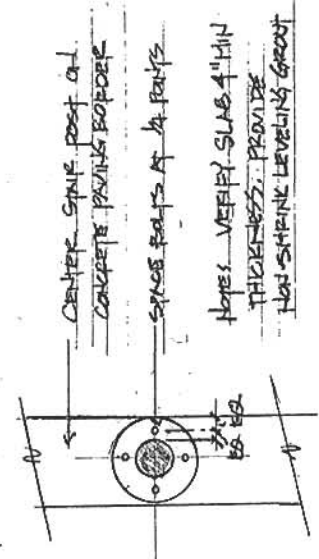 CENTER STAIR POST ON
CONCRETE PAVING BORDER
SPACE BOLTS AT 1/4 POINTS
NOTE: VERIFY SLAB 4" MIN
THICKNESS. PROVIDE
NON-SHRINK LEVELING GROUT
EQ EQ